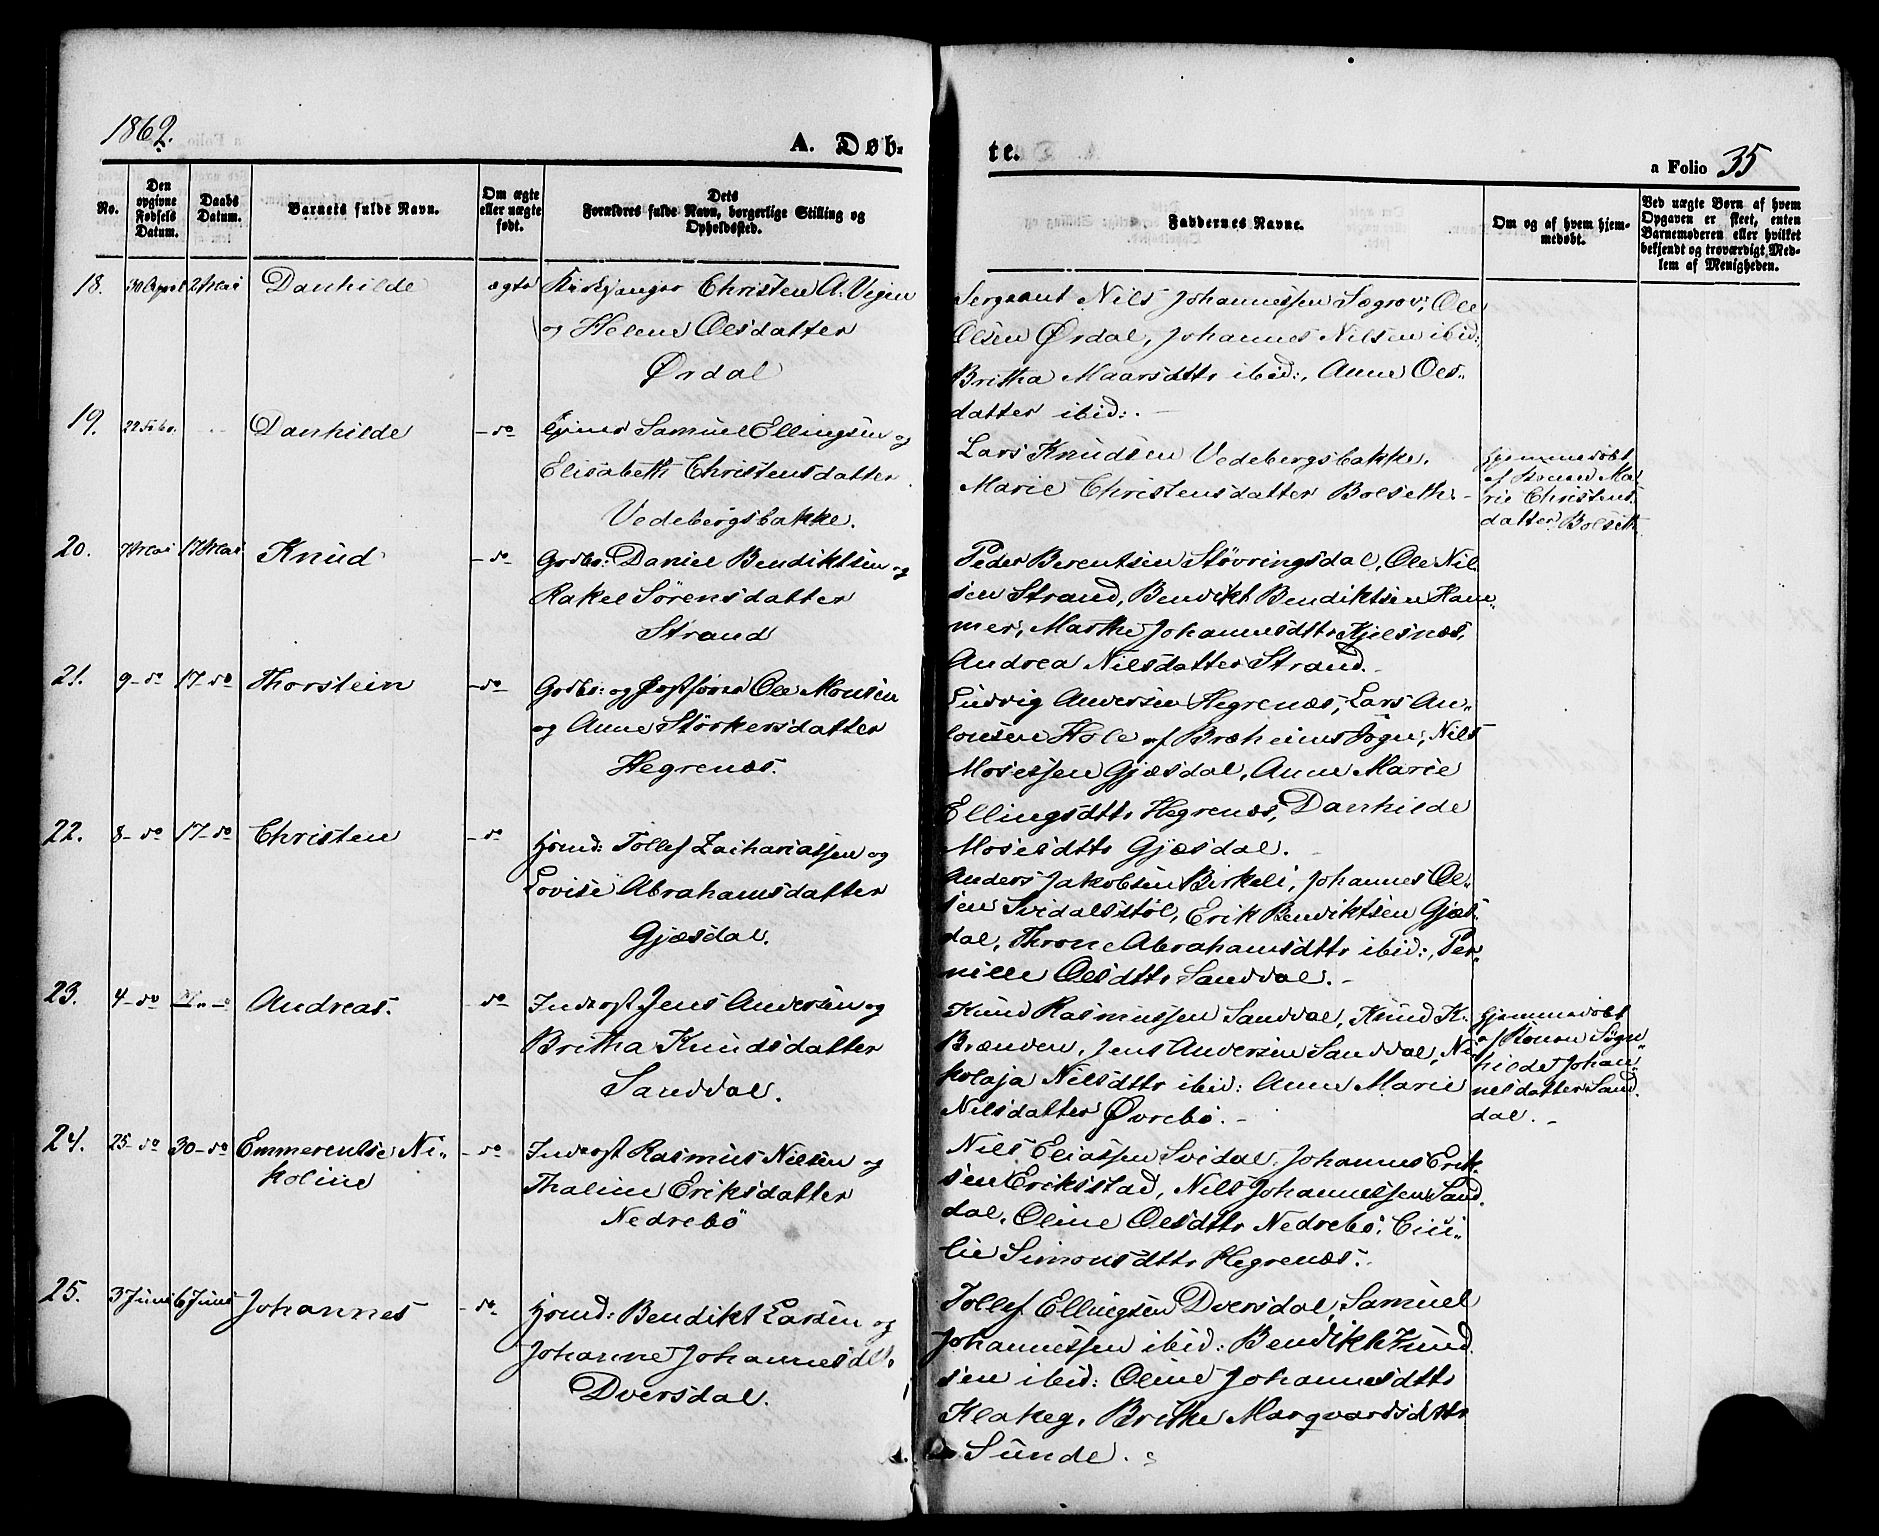 1862.
A. Døb-
te.
a Folio 35
No.
Den
opgivne
Fødsels
Datum.
Daabs
Datum.
Barnets fulde Navn.
Om ægte
eller uægte
født.
Dets
Forældres fulde Navn, borgerlige Stilling og
Opholdssted.
Faddernes Navne.
Om og af hvem hjem-
medøbt.
Ved uægte Børn af hvem
Opgaven er skeet, enten
Barnemoderen eller hvilket
bekjendt og troværdigt Med-
lem af Menigheden.
18. 30 April 2 Mai Danhilde ægte Kirkjanger Christen A. Vegen
og Helene Olsdatter
Ørdal
Sergeant Nils Johannessen Sægrov, Ole
Olsen Ørdal, Johannes Nilsen ibid:
Britha Maarsdtr ibid:, Anne Ols-
datter ibid:. -
19. 22 Febr. Danhilde - do Samuel Ellingsen og
Elisabeth Christensdatter
Vedebergsbakke.
Lars Knudsen Vedebergsbakke.
Marie Christensdatter Bolseth -
Hjemmedøbt
af Konen Ma-
rie Christens-
datter Bolseth
20. 7 Mai 17 Mai Knud - do Grdbr: Daniel Bendiktsen og
Rakel Sørensdatter
Strand
Peder Berentsen Støvringsdal, Ole Nil-
sen Strand, Bendikt Bendiktsen Ham-
mer, Marthe Johannesdtr Kjelsnæs,
Andrea Nilsdatter Strand. -
21. 9 - do 17 - do Thorstein - do Grdbr: og Ole Monsen
og Anne Størkersdatter
Hegrenæs.
Ludvig Andersen Hegrenæs, Lars An-
tonsen Hole af Bræheims Sogn, Nils
Mosessen Gjæsdal, Anne Marie
Ellingsdtr Hegrenæs, Danhilde
Mosesdtr Gjæsdal. -
22. 8 - do 17 - do Christen - do Hsmd: Tollef Zachariassen og
Lovise Abrahamsdatter
Gjæsdal.
Anders Jakobsen Birkeli, Johannes Ol-
sen Svidalsstøl, Erik Bendiktsen Gjæs-
dal, Throne Abrahamsdtr ibid:, Per-
nille Olsdtr Sanddal. -
23. 4 - do Andreas. - do Inderst Jens Andersen og
Britha Knudsdatter
Sanddal.
Knud Rasmussen Sanddal, Knud K.
Brænden, Jens Andersen Sanddal, Ni-
kolaja Nilsdtr ibid: Anne Marie
Nilsdatter Øvrebø. -
Hjemmedøbt
af Konen Søgn-
hilde Johan-
nesdatter Sand-
dal. -
24. 25 - do 30 - do Emmerentse Ni-
koline - do Inderst Rasmus Nielsen og
Thaline Eriksdatter
Nedrebø
Nils Eliassen Svidal, Johannes Erik-
sen Eriksstad, Nils Johannessen Sand-
dal, Oline Olsdtr Nedrebø, Cici-
lie Simonsdtr Hegrenæs. -
25. 3 Juni 6 Juni Johannes - do Hsmd: Bendikt Larsen og
Johanne Johannesdtr.
Dversdal.
Tollef Ellingsen Dversdal, Samuel
Johannessen ibid: Bendikt Knud-
sen ibid: Oline Johannesdtr
Klakeg, Brithe Marqvardsdtr
Sunde.